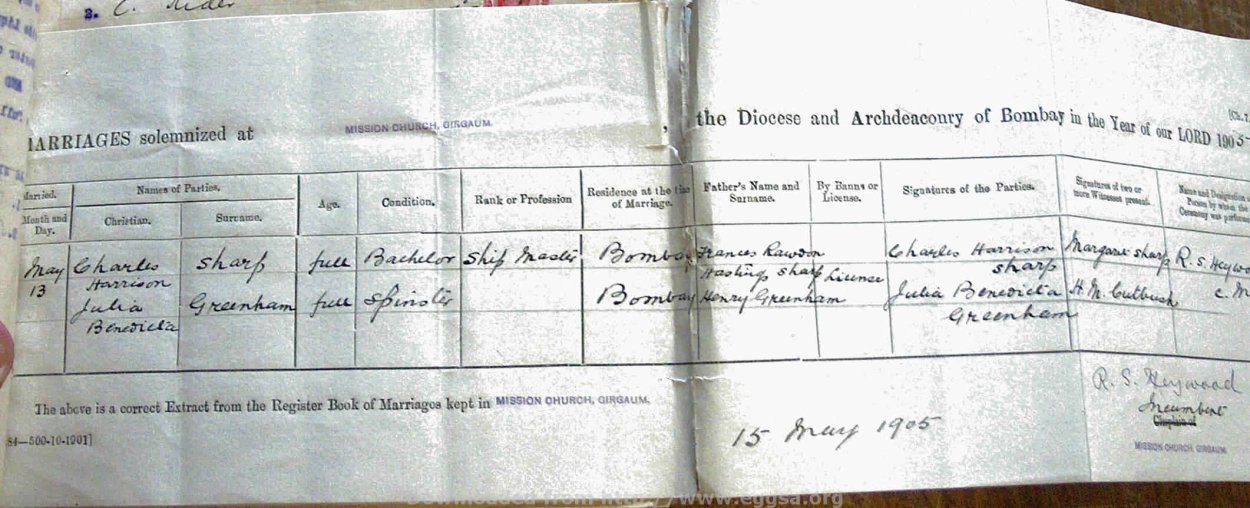 2. C.
MARRIAGES solemnized at MISSION CHURCH, GIRGAUM. , the Diocese and Archdeaconry of Bombay in the Year of our LORD 1905
Married. Names of Parties. Age. Condition. Rank or Profession Residence at the time of Marriage. Father's Name and Surname. By Banns or License. Signatures of the Parties. Signatures of two or more Witnesses present. Name and Designation Person by whom the Ceremony was performed
Month and Day. Christian. Surname.
May 13 Charles Harrison Sharp full Bachelor Ship Master Bombay Frances Rawdon Hastings Sharp License Charles Harrison Sharp Margaret Sharp R. S. Heywo
Julia Benedicta Greenham full Spinster Bombay Henry Greenham Julia Benedicta Greenham H. M. Cutbush C. M
The above is a correct Extract from the Register Book of Marriages kept in MISSION CHURCH, GIRGAUM.
R. S. Heywood
Incumbent
15 May 1905
Chaplain of
84—500-10-1901]
MISSION CHURCH, GIRGAUM
Downloaded from http://www.eggsa.org